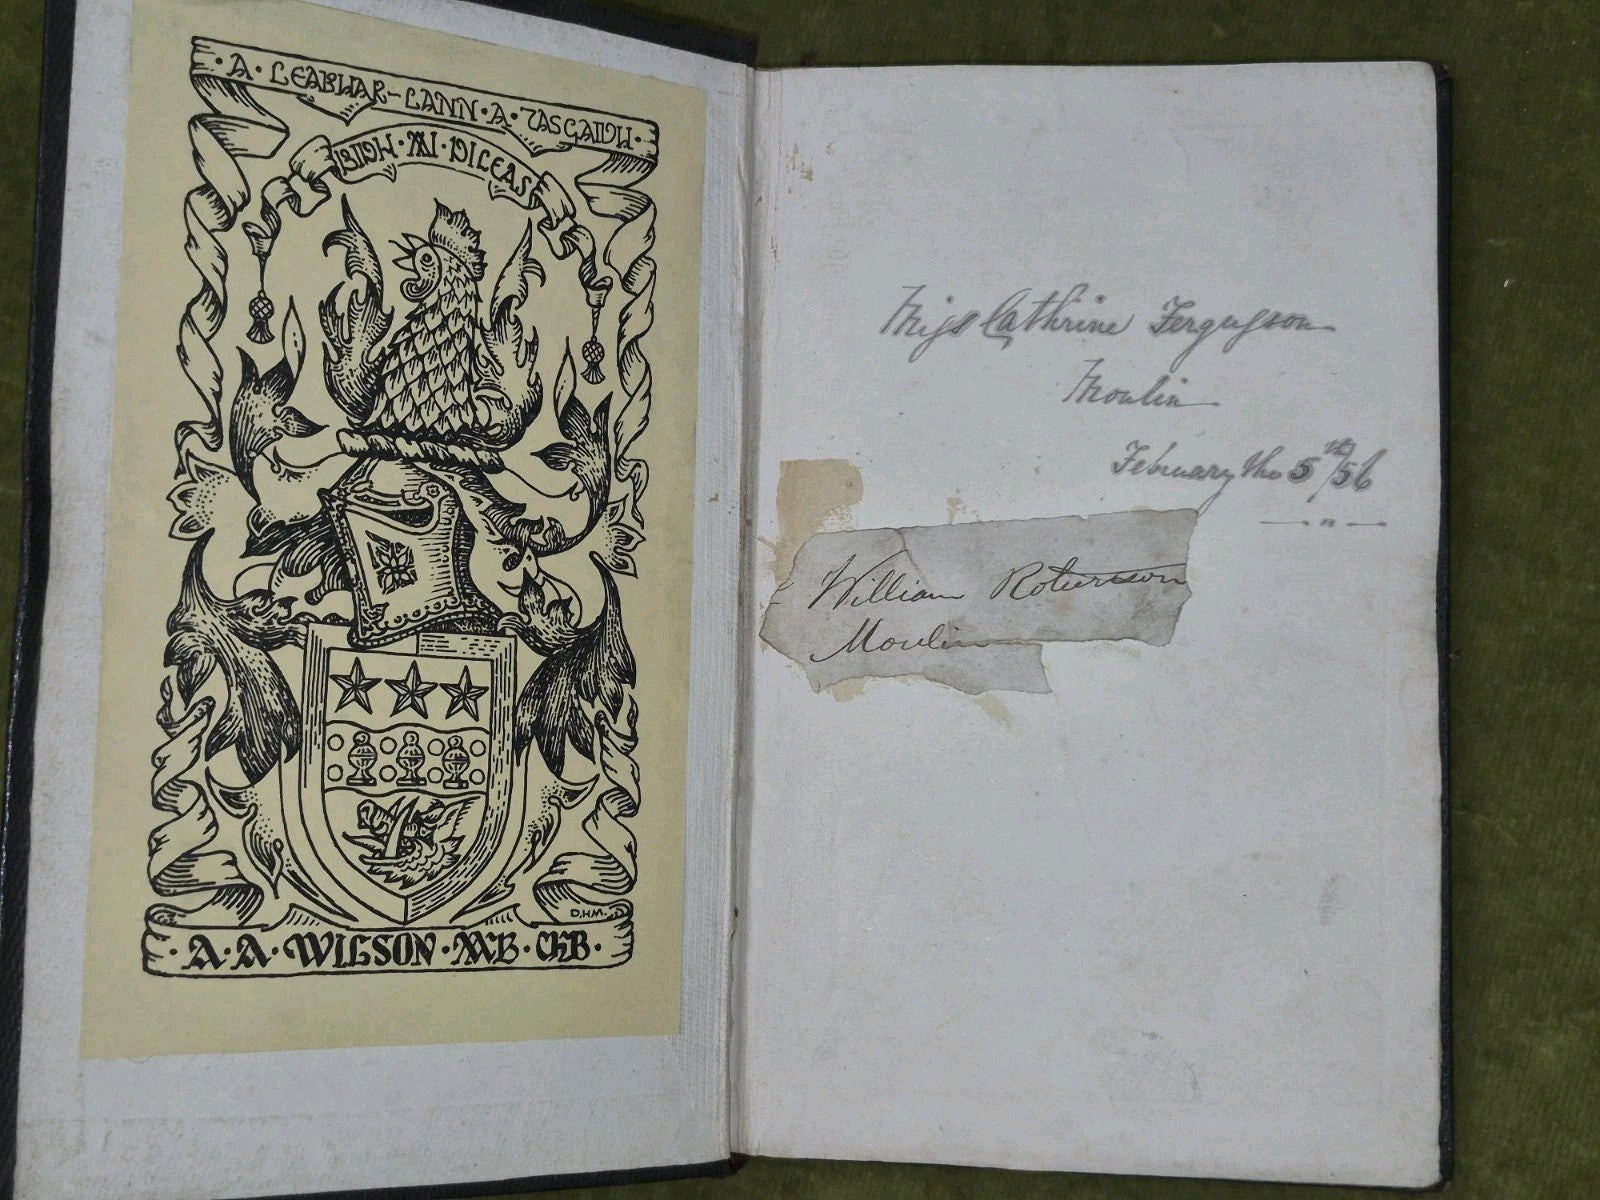 ·A·LEABHAR-LANN·A·TASGAIDH·
BIDH·MI·DILEAS
D.H.M.
·A·A·WILSON·MB·CHB·
Miss Cathrine Fergusson
Moulin
February the 5th/56
William Robertson
Moulin